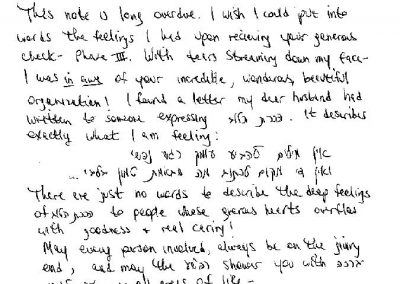 This note is long overdue. I wish I could put into
words the feelings I had upon recieving your generous
check - Phase III. With tears streaming down my face -
I was in awe of your incredible, wonderous, beautiful
organization! I found a letter my dear husband had
written to someone expressing הכרת הטוב. It describes
exactly what I am feeling:
אין מילים להביע עומק רגשי נפשי
ואין די מקום לכתוב מה
There are just no words to describe the deep feelings
of הכרת הטוב to people whose generous hearts overflow
with goodness & real caring!
May every person involved, always be on the giving
end, and may the shower you with ברכה
all areas of life -